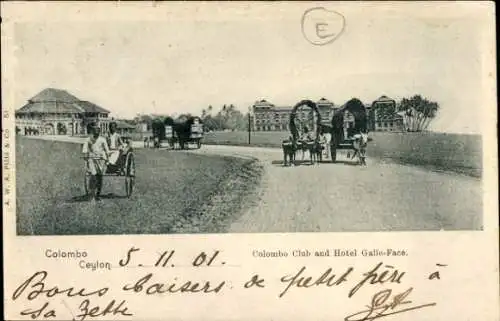 E
A. W. A. Plâté & Co. 51
Colombo
Ceylon
5 . 11 . 01 .
Colombo Club and Hotel Galle-Face.
Bons baisers de petit frère à
sa